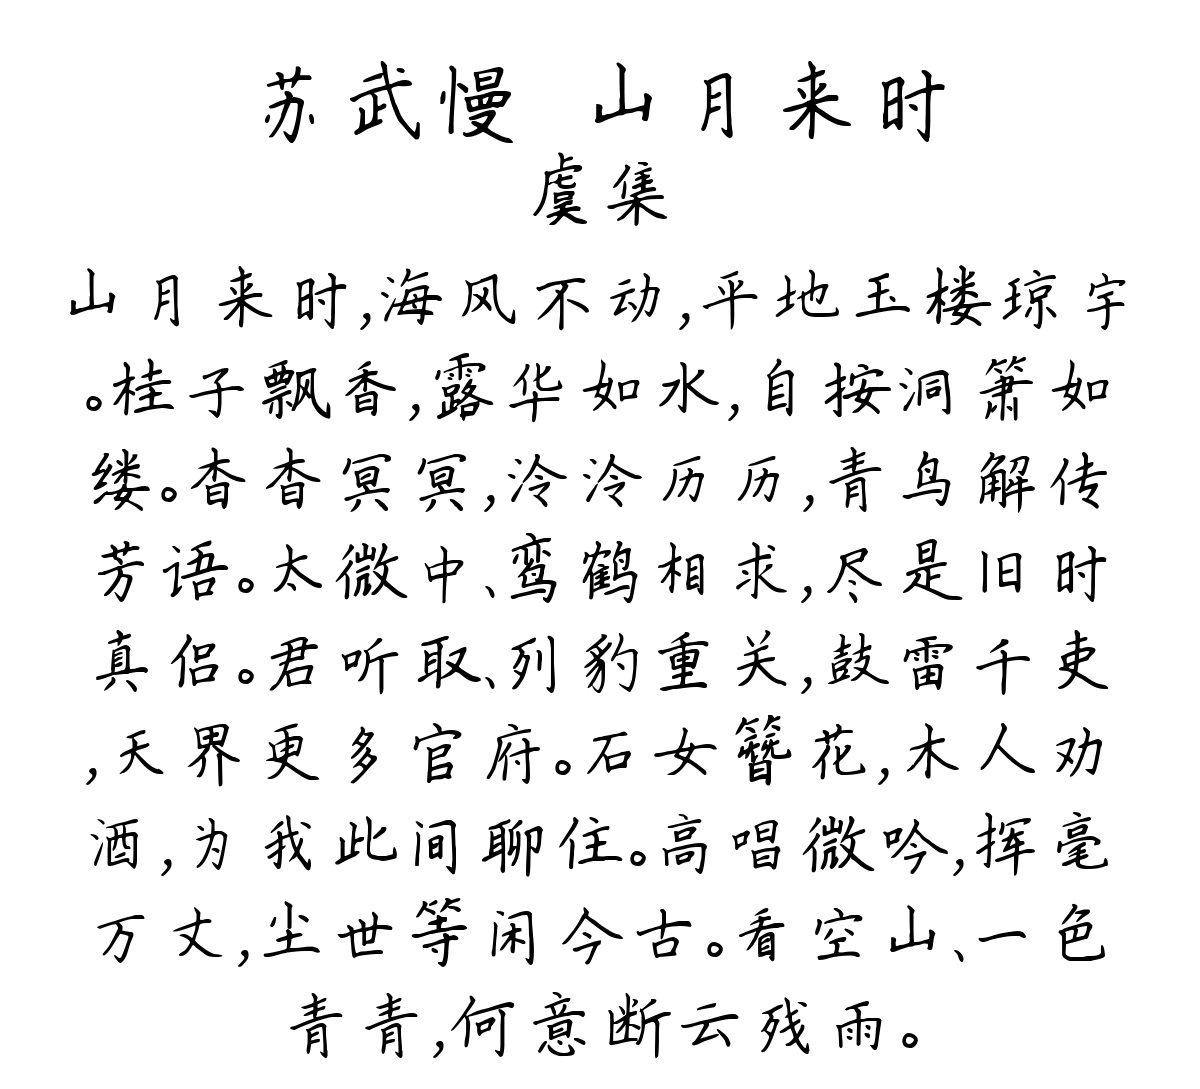 苏武慢 山月来时
虞集
山月来时,海风不动,平地玉楼琼宇
。桂子飘香,露华如水,自按洞箫如
缕。杳杳冥冥,泠泠历历,青鸟解传
芳语。太微中、鸾鹤相求,尽是旧时
真侣。君听取、列豹重关,鼓雷千吏
,天界更多官府。石女簪花,木人劝
酒,为我此间聊住。高唱微吟,挥毫
万丈,尘世等闲今古。看空山、一色
青青,何意断云残雨。